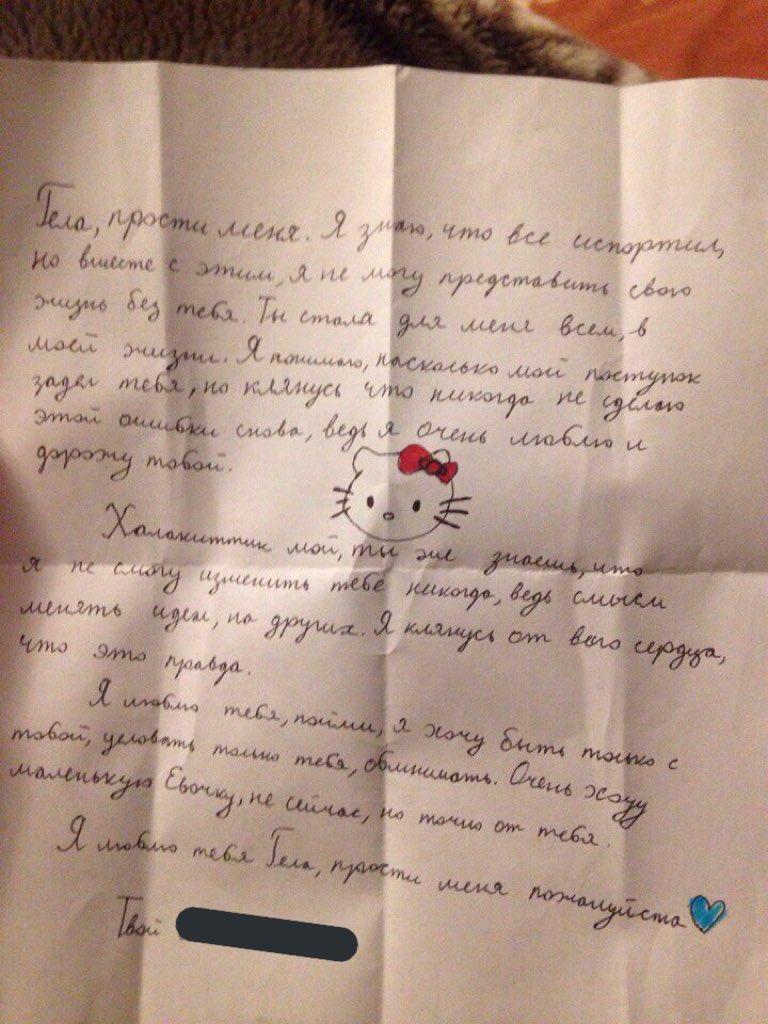 Гела, прости меня. Я знаю, что все испортил,
но вместе с этим, я не могу представить свою
жизнь без тебя. Ты стала для меня всем, в
моей жизни. Я понимаю, насколько мой поступок
задел тебя, но клянусь что никогда не сделаю
этой ошибки снова, ведь я очень люблю и
дорожу тобой.
Халакиттик мой, ты же знаешь, что
я не смогу изменить тебе никогда, ведь смысл
менять идеал, на других. Я клянусь от всего сердца,
что это правда.
Я люблю тебя, пойми, я хочу быть только с
тобой, целовать только тебя, обминать. Очень хочу
маленькую Евочку, не сейчас, но точно от тебя.
Я люблю тебя Гела, прости меня пожалуйста
Твой